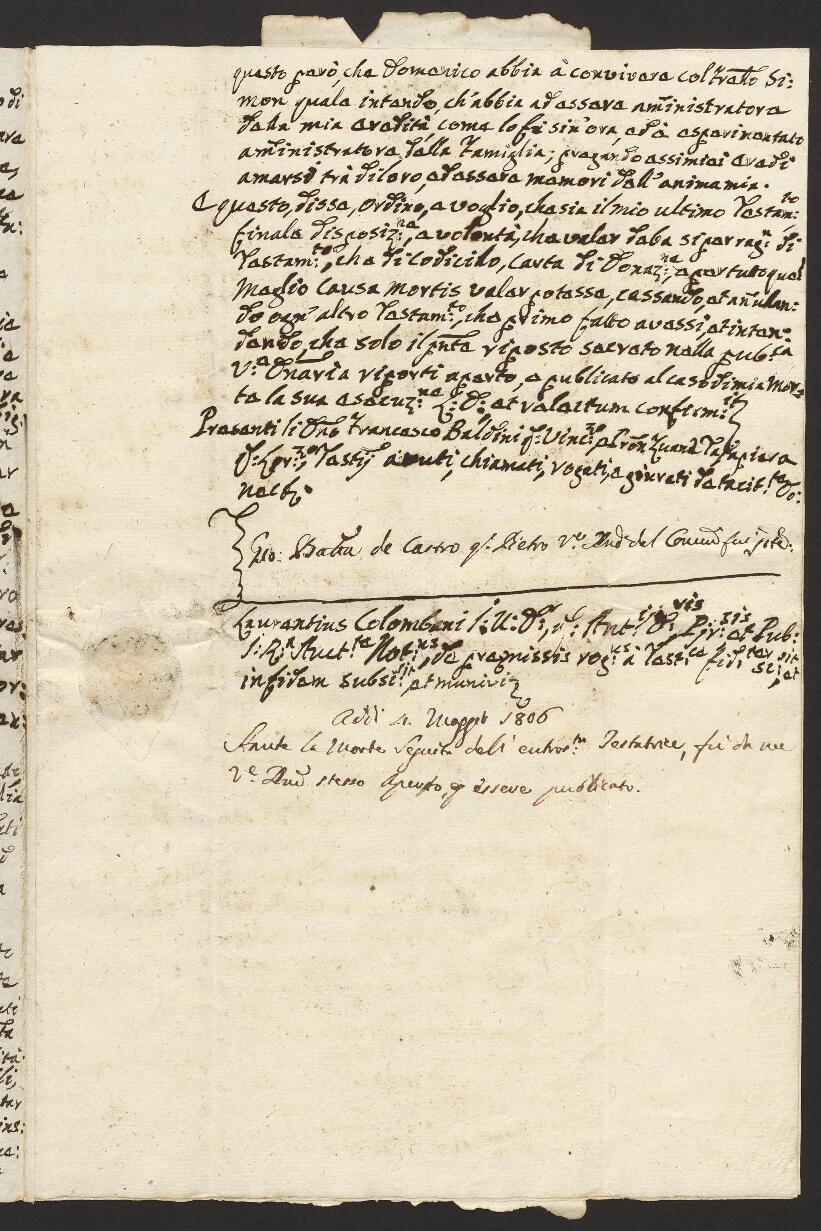 questo però, che Domenico abbia à convivere col Fratello Si:
mon quale intendo, ch'abbia ad essere aministratore
della mia eredità, come lo fù sin'ora, ed à esperimentato
aministratore della Famiglia; pregando assimiei eredi
amarsi trà di loro, ad essere memori dell'anima mia.
E questo, disse, ordino, e voglio, che sia il mio ultimo Testam:to
finale disposiz:ne, e volontà, che valer debba si per rag:n di
Testam:to, che di Codicilo, Carta di Donaz:ne, e per tutto quel
Meglio Causa Mortis valer potesse, cassando, et anulan:
do ogn'altro Testam:to, che primo fatto avessi, et inten:
dendo, che solo il pnte riposto serrato nella pub:ca
V:a Dnaria riporti aperto, e publicato al caso di mia Mor:
te la sua esecuz:ne et valeitum confirm:
Presenti li Francesco Baldini q: Vinc:zo
Testij avuti, chiamati, rogati, e giurati de tacit:te Do:
nec &
Gio: Batta de Castro q: Pietro V:e del Comun
Laurentius Colombani I: U: D:r, q: Ant:ii D: Pir: et Pub:
I: R: Auct:te Not:us, de premissis rog:s à Test:ce
in fidem subsi:, et munivi
Adi 4. Maggio 1806
Stante la Morte Seguita dell' entros:ta Testatrice, fù da me
V:e stesso Aperto, p essere publicato.